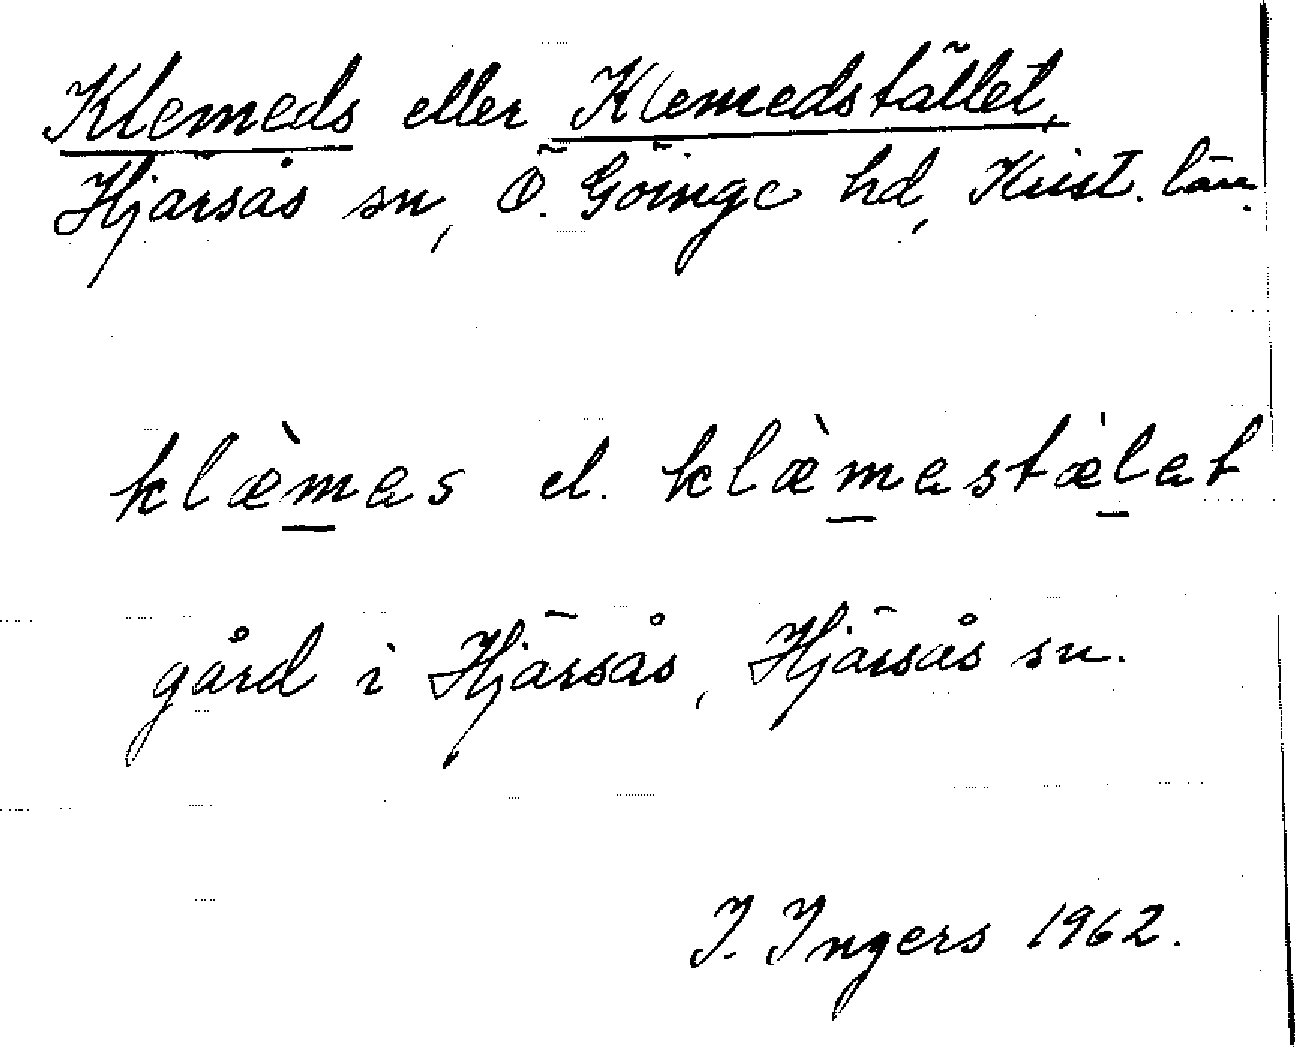 Klemeds eller Klemedstället,
Hjärsås sn, Ö. Göinge hd, Krist. län.
klæ̀mas el. klæ̀mastælat
gård i Hjärsås, Hjärsås sn.
I. Ingers 1962.